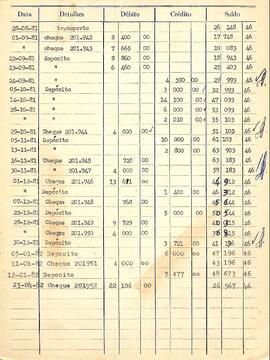 Data Detalhes Débito Crédito Saldo
28-08-81 transporte 26 148 46
01-09-81 cheque 201.942 8 400 00 17 748 46
" cheque 201.943 7 665 00 10 083 46
22-09-81 deposito 8 860 00 18 943 46
29-09-81 " 6 460 00 25 403 46
" " 4 590 00 29 993 46
05-10-81 Depósito 3 000 00 32 993 46
" " 14 100 00 47 093 46
28-10-81 " 6 000 00 53 093 46
" " 2 010 00 55 103 46
29-10-81 Cheque 201.944 4 000 00 51 103 46
05-11-81 Depósito 10 000 00 61 103 46
13-11-81 " 2 800 00 63 903 46
16-11-81 Cheque 201.945 720 00 63 183 46
" Cheque 201.947 00 63 46
01-12-81 Cheque 201.946 13 00 46
" Deposito 1 400 00 46
07-12-81 Cheque 201.948 768 00 46
22-12-81 Deposito 5 000 00 46
28-12-81 Cheque 201.949 9 729 00 46
" Cheque 201.950 4 000 00 46
30-12-81 Depósito 3 721 00 41 196 46
05-01-82 Deposito 6 000 00 47 196 46
11-01-82 Cheque 201951 4 000 00 43 196 46
12-01-82 Deposito 5 477 00 48 673 46
23-04-82 Cheque 201952 22 106 00 26 567 46